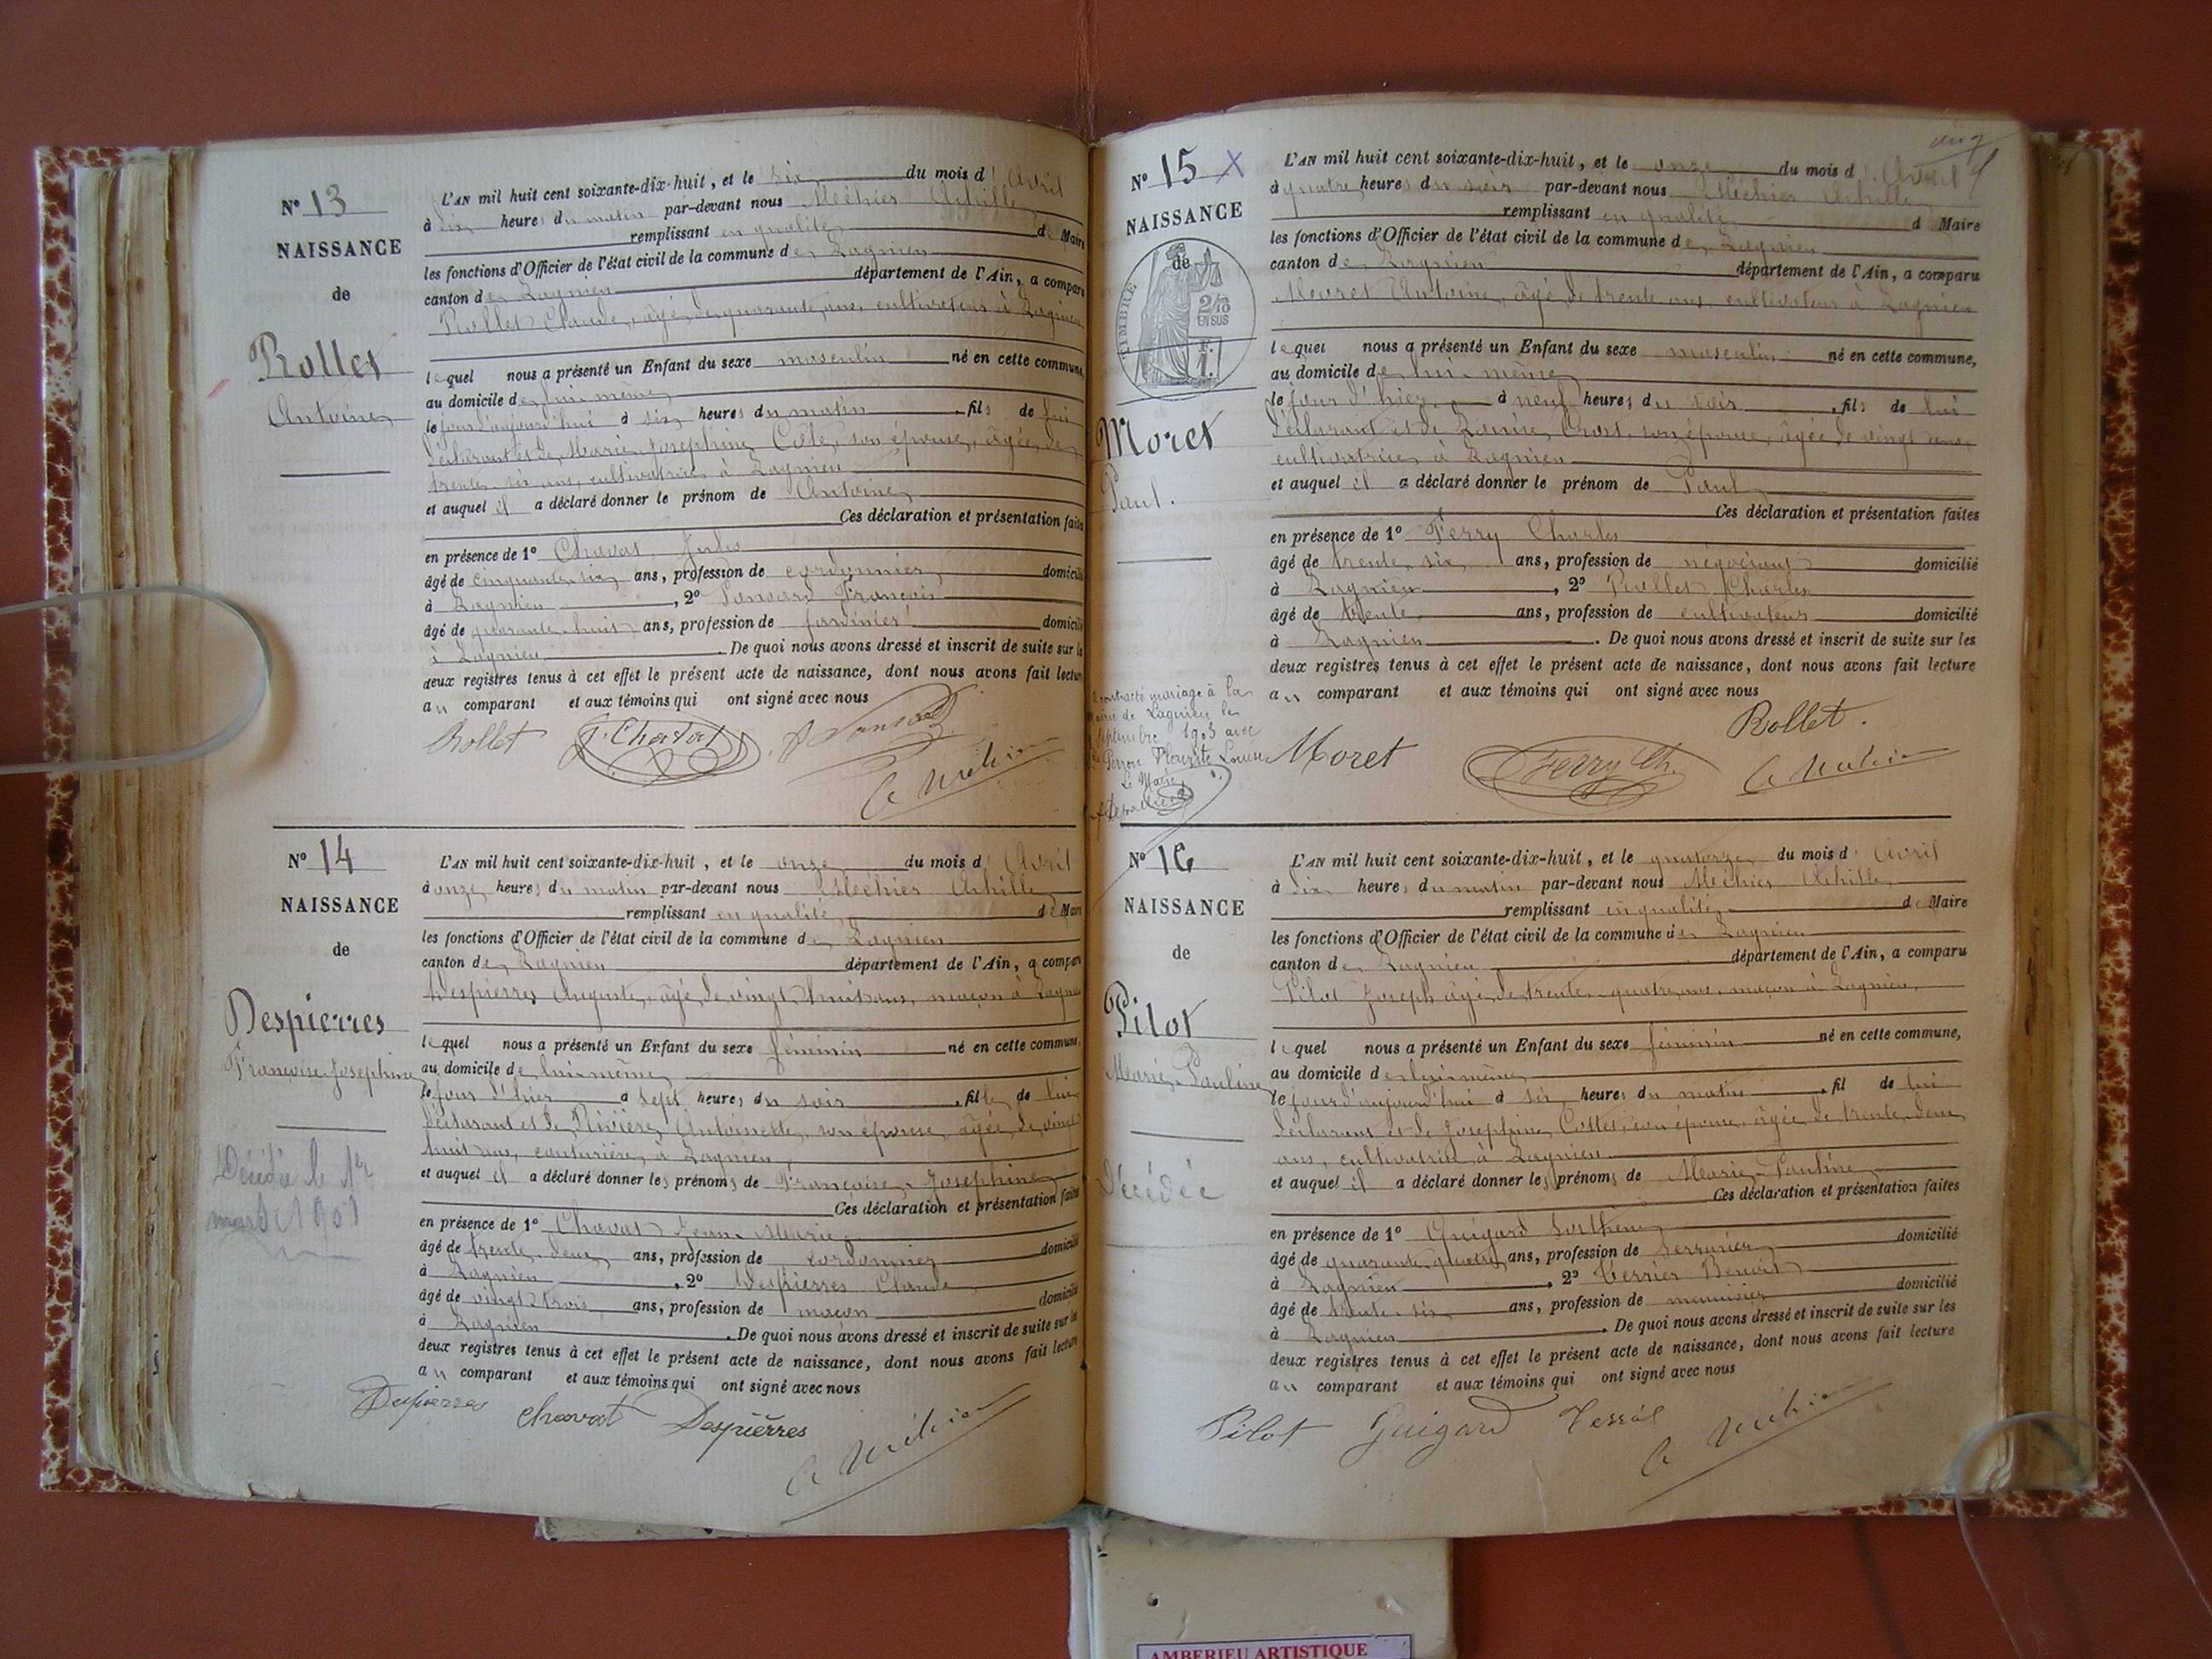 Nº 13
NAISSANCE
de
Rollet
Antoine
L'AN mil huit cent soixante-dix-huit, et le six du mois d'Avril
à six heures du matin par-devant nous Méhier Achille
remplissant en qualité de Maire
les fonctions d'Officier de l'état civil de la commune de Lagnieu
canton de Lagnieu département de l'Ain, a comparu
Rollet Claude, âgé de quarante ans, cultivateur à Lagnieu
lequel nous a présenté un Enfant du sexe masculin né en cette commune,
au domicile de lui-même
le jour d'aujourd'hui à six heures du matin, fils de lui
déclarant et de Marie Josephine Côte, son épouse, âgée de
trente-six ans, cultivatrice à Lagnieu
et auquel il a déclaré donner le prénom de Antoine
Ces déclaration et présentation faites
en présence de 1º Chavat Jules
âgé de cinquante-six ans, profession de cordonnier domicilié
à Lagnieu, 2º Pansard François
âgé de quarante-huit ans, profession de jardinier domicilié
à Lagnieu. De quoi nous avons dressé et inscrit de suite sur le
deux registres tenus à cet effet le présent acte de naissance, dont nous avons fait lecture
au comparant et aux témoins qui ont signé avec nous
Rollet
A Méhier
Nº 14
NAISSANCE
de
Despierres
Françoise Josephine
Décédée le 1er
mars 1901
L'AN mil huit cent soixante-dix-huit, et le onze du mois d'Avril
à onze heures du matin par-devant nous Méhier Achille
remplissant en qualité de Maire
les fonctions d'Officier de l'état civil de la commune de Lagnieu
canton de Lagnieu département de l'Ain, a comparu
Despierres Auguste, âgé de vingt-huit ans, maçon à Lagnieu
lequel nous a présenté un Enfant du sexe féminin né en cette commune,
au domicile de lui-même
le jour d'hier à sept heures du soir, fille de lui
déclarant et de Rivière Antoinette, son épouse, âgée de vingt
huit ans, couturière à Lagnieu
et auquel il a déclaré donner les prénoms de Françoise Josephine
Ces déclaration et présentation faites
en présence de 1º Chavat Jean-Marie
âgé de trente-deux ans, profession de cordonnier domicilié
à Lagnieu, 2º Despierres Claude
âgé de vingt-trois ans, profession de maçon domicilié
à Lagnieu. De quoi nous avons dressé et inscrit de suite sur les
deux registres tenus à cet effet le présent acte de naissance, dont nous avons fait lecture
au comparant et aux témoins qui ont signé avec nous
Depierres Chavat Despierres
A Méhier
cinq
Nº 15 X
NAISSANCE
de
TIMBRE
2/10
EN SUS
F.
1.
Moret
Paul.
contracté mariage à la
Mairie de Lagnieu le
septembre 1903 avec
Perron Fleurette Louise
Le Maire,
L'AN mil huit cent soixante-dix-huit, et le onze du mois d'Avril
à quatre heures du soir par-devant nous Méhier Achille
remplissant en qualité d Maire
les fonctions d'Officier de l'état civil de la commune de Lagnieu
canton de Lagnieu département de l'Ain, a comparu
Moret Antoine, âgé de trente ans, cultivateur à Lagnieu
lequel nous a présenté un Enfant du sexe masculin né en cette commune,
au domicile de lui-même
le jour d'hier à neuf heures du soir, fils de lui
déclarant et de Louise Crost, son épouse, âgée de vingt
cultivatrice à Lagnieu
et auquel il a déclaré donner le prénom de Paul
Ces déclaration et présentation faites
en présence de 1º Ferry Charles
âgé de trente-six ans, profession de négociant domicilié
à Lagnieu, 2º Rollet Charles
âgé de trente ans, profession de cultivateur domicilié
à Lagnieu. De quoi nous avons dressé et inscrit de suite sur les
deux registres tenus à cet effet le présent acte de naissance, dont nous avons fait lecture
au comparant et aux témoins qui ont signé avec nous
Rollet.
Moret Ferry Ch. A Méhier
Nº 16
NAISSANCE
de
Pilot
Marie-Pauline
Décédée
L'AN mil huit cent soixante-dix-huit, et le quatorze du mois d'Avril
à dix heures du matin par-devant nous Méhier Achille
remplissant en qualité de Maire
les fonctions d'Officier de l'état civil de la commune de Lagnieu
canton de Lagnieu département de l'Ain, a comparu
Pilot Joseph âgé de trente-quatre ans, maçon à Lagnieu,
lequel nous a présenté un Enfant du sexe féminin né en cette commune,
au domicile de lui-même
le jour d'aujourd'hui à six heures du matin, fil de lui
déclarant et de Josephine Cottet, son épouse, âgée de trente-deux
ans, cultivatrice à Lagnieu
et auquel il a déclaré donner les prénoms de Marie-Pauline
Ces déclaration et présentation faites
en présence de 1º Guigard Sosthène
âgé de quarante-quatre ans, profession de serrurier domicilié
à Lagnieu, 2º Terrier Benoit
âgé de trente-six ans, profession de menuisier domicilié
à Lagnieu. De quoi nous avons dressé et inscrit de suite sur les
deux registres tenus à cet effet le présent acte de naissance, dont nous avons fait lecture
au comparant et aux témoins qui ont signé avec nous
Pilot Guigard A Méhier
AMBERIEU ARTISTIQUE